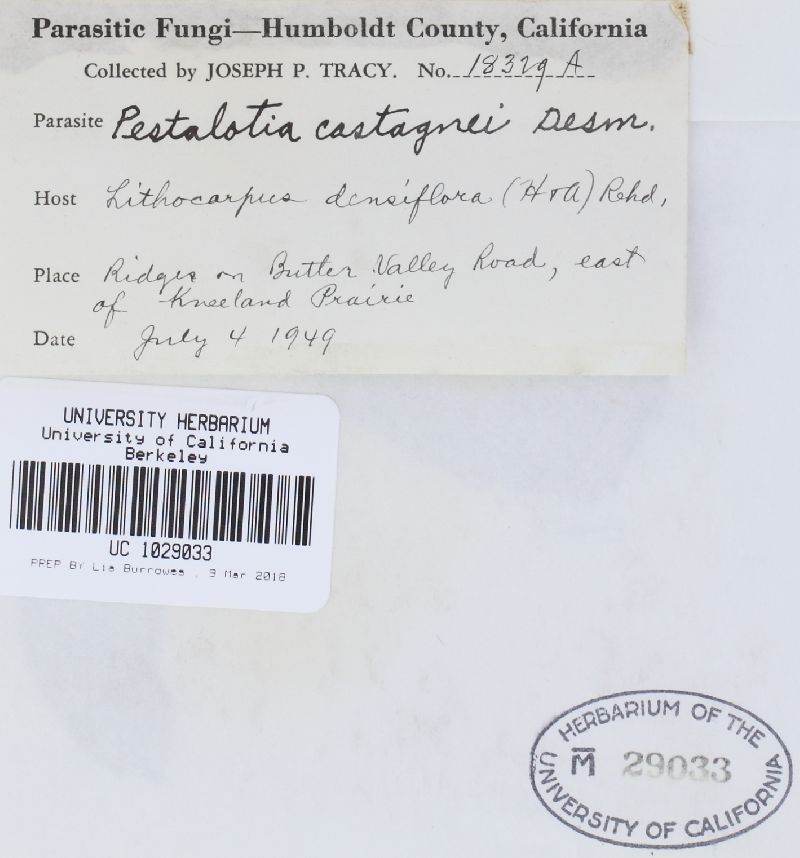 Parasitic Fungi—Humboldt County, California
Collected by JOSEPH P. TRACY. No. 18329 A
Parasite Pestalotia castagnei Desm.
Host Lithocarpus densiflora (H & A) Rehd,
Place Ridges on Butler Valley Road, east
of Kneeland Prairie
Date July 4 1949
UNIVERSITY HERBARIUM
University of California
Berkeley
UC 1029033
PREP BY Lia Burrowes , 9 Mar 2018
HERBARIUM OF THE
M 29033
UNIVERSITY OF CALIFORNIA